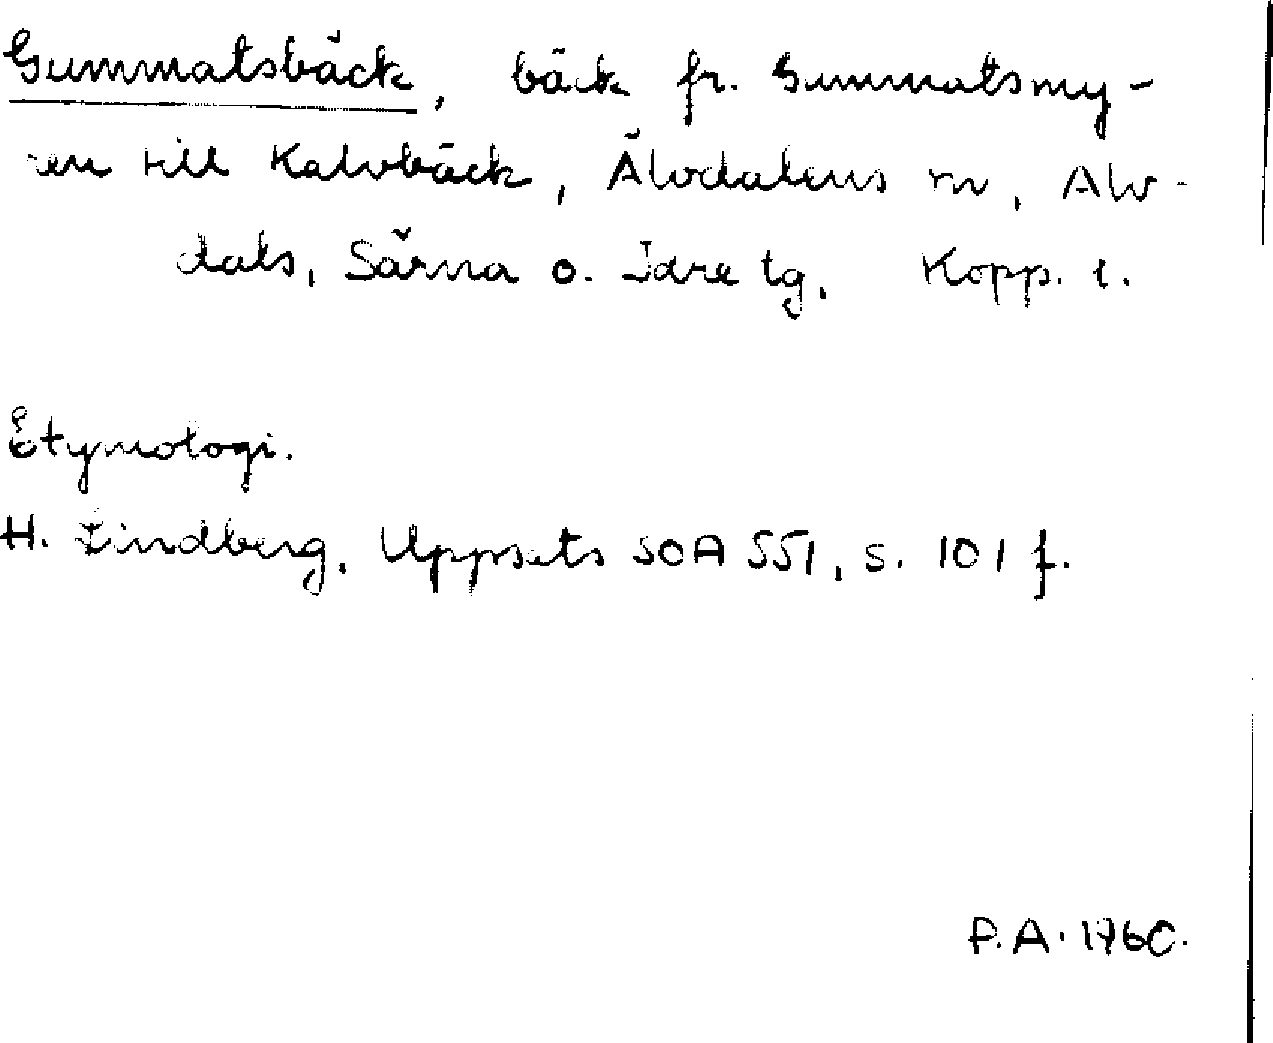 Gummatsbäck, bäck fr. Gummatsmy-
ren till Kalvbäck, Älvdalens sn, Älv-
dals, Särna o. Idre tg. Kopp. l.
Etymologi.
H. Lindberg, Uppsats SOA 551, s. 101 f.
P.A. 1960.